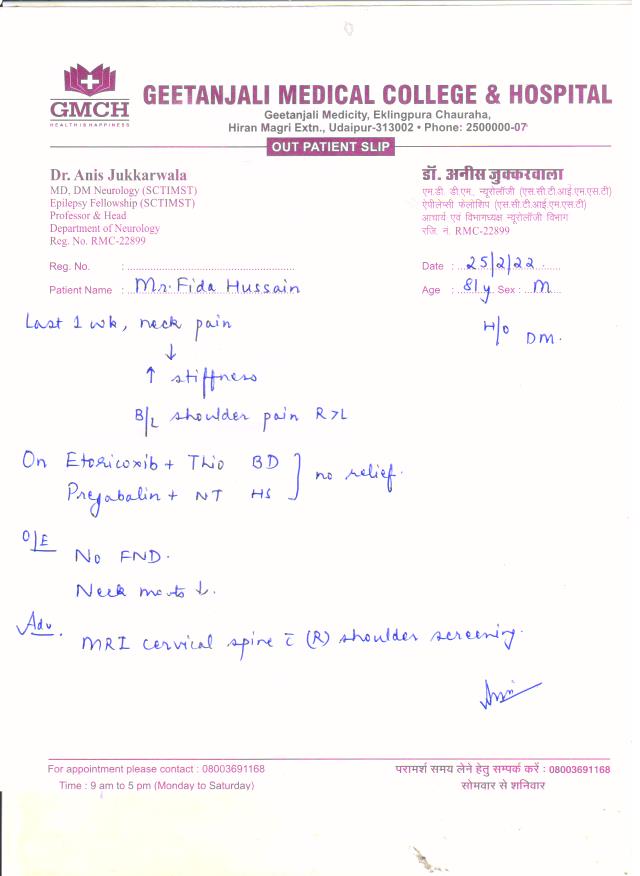 GMCH
HEALTH IS HAPPINESS
GEETANJALI MEDICAL COLLEGE & HOSPITAL
Geetanjali Medicity, Eklingpura Chauraha,
Hiran Magri Extn., Udaipur-313002 • Phone: 2500000-07
OUT PATIENT SLIP
Dr. Anis Jukkarwala
MD, DM Neurology (SCTIMST)
Epilepsy Fellowship (SCTIMST)
Professor & Head
Department of Neurology
Reg. No. RMC-22899
डॉ. अनीस जुक्करवाला
एम.डी. डी.एम., न्यूरोलॉजी (एस.सी.टी.आई.एम.एस.टी)
ऐपीलेप्सी फेलोशिप (एस.सी.टी.आई.एम.एस.टी)
आचार्य एवं विभागध्यक्ष न्यूरोलॉजी विभाग
रजि. नं. RMC-22899
Reg. No. :
Date : 25/2/22
Patient Name : Mr. Fida Hussain
Age : 81 y Sex : M
Last 1 wk, neck pain
H/o DM.
↓
↑ stiffness
B/L shoulder pain R>L
On Etoricoxib + Thio BD
Pregabalin + NT HS
no relief.
O/E
No FND.
Neck mots ↓.
Adv.
MRI cervical spine c̄ (R) shoulder screening.
For appointment please contact : 08003691168
Time : 9 am to 5 pm (Monday to Saturday)
परामर्श समय लेने हेतु सम्पर्क करें : 08003691168
सोमवार से शनिवार